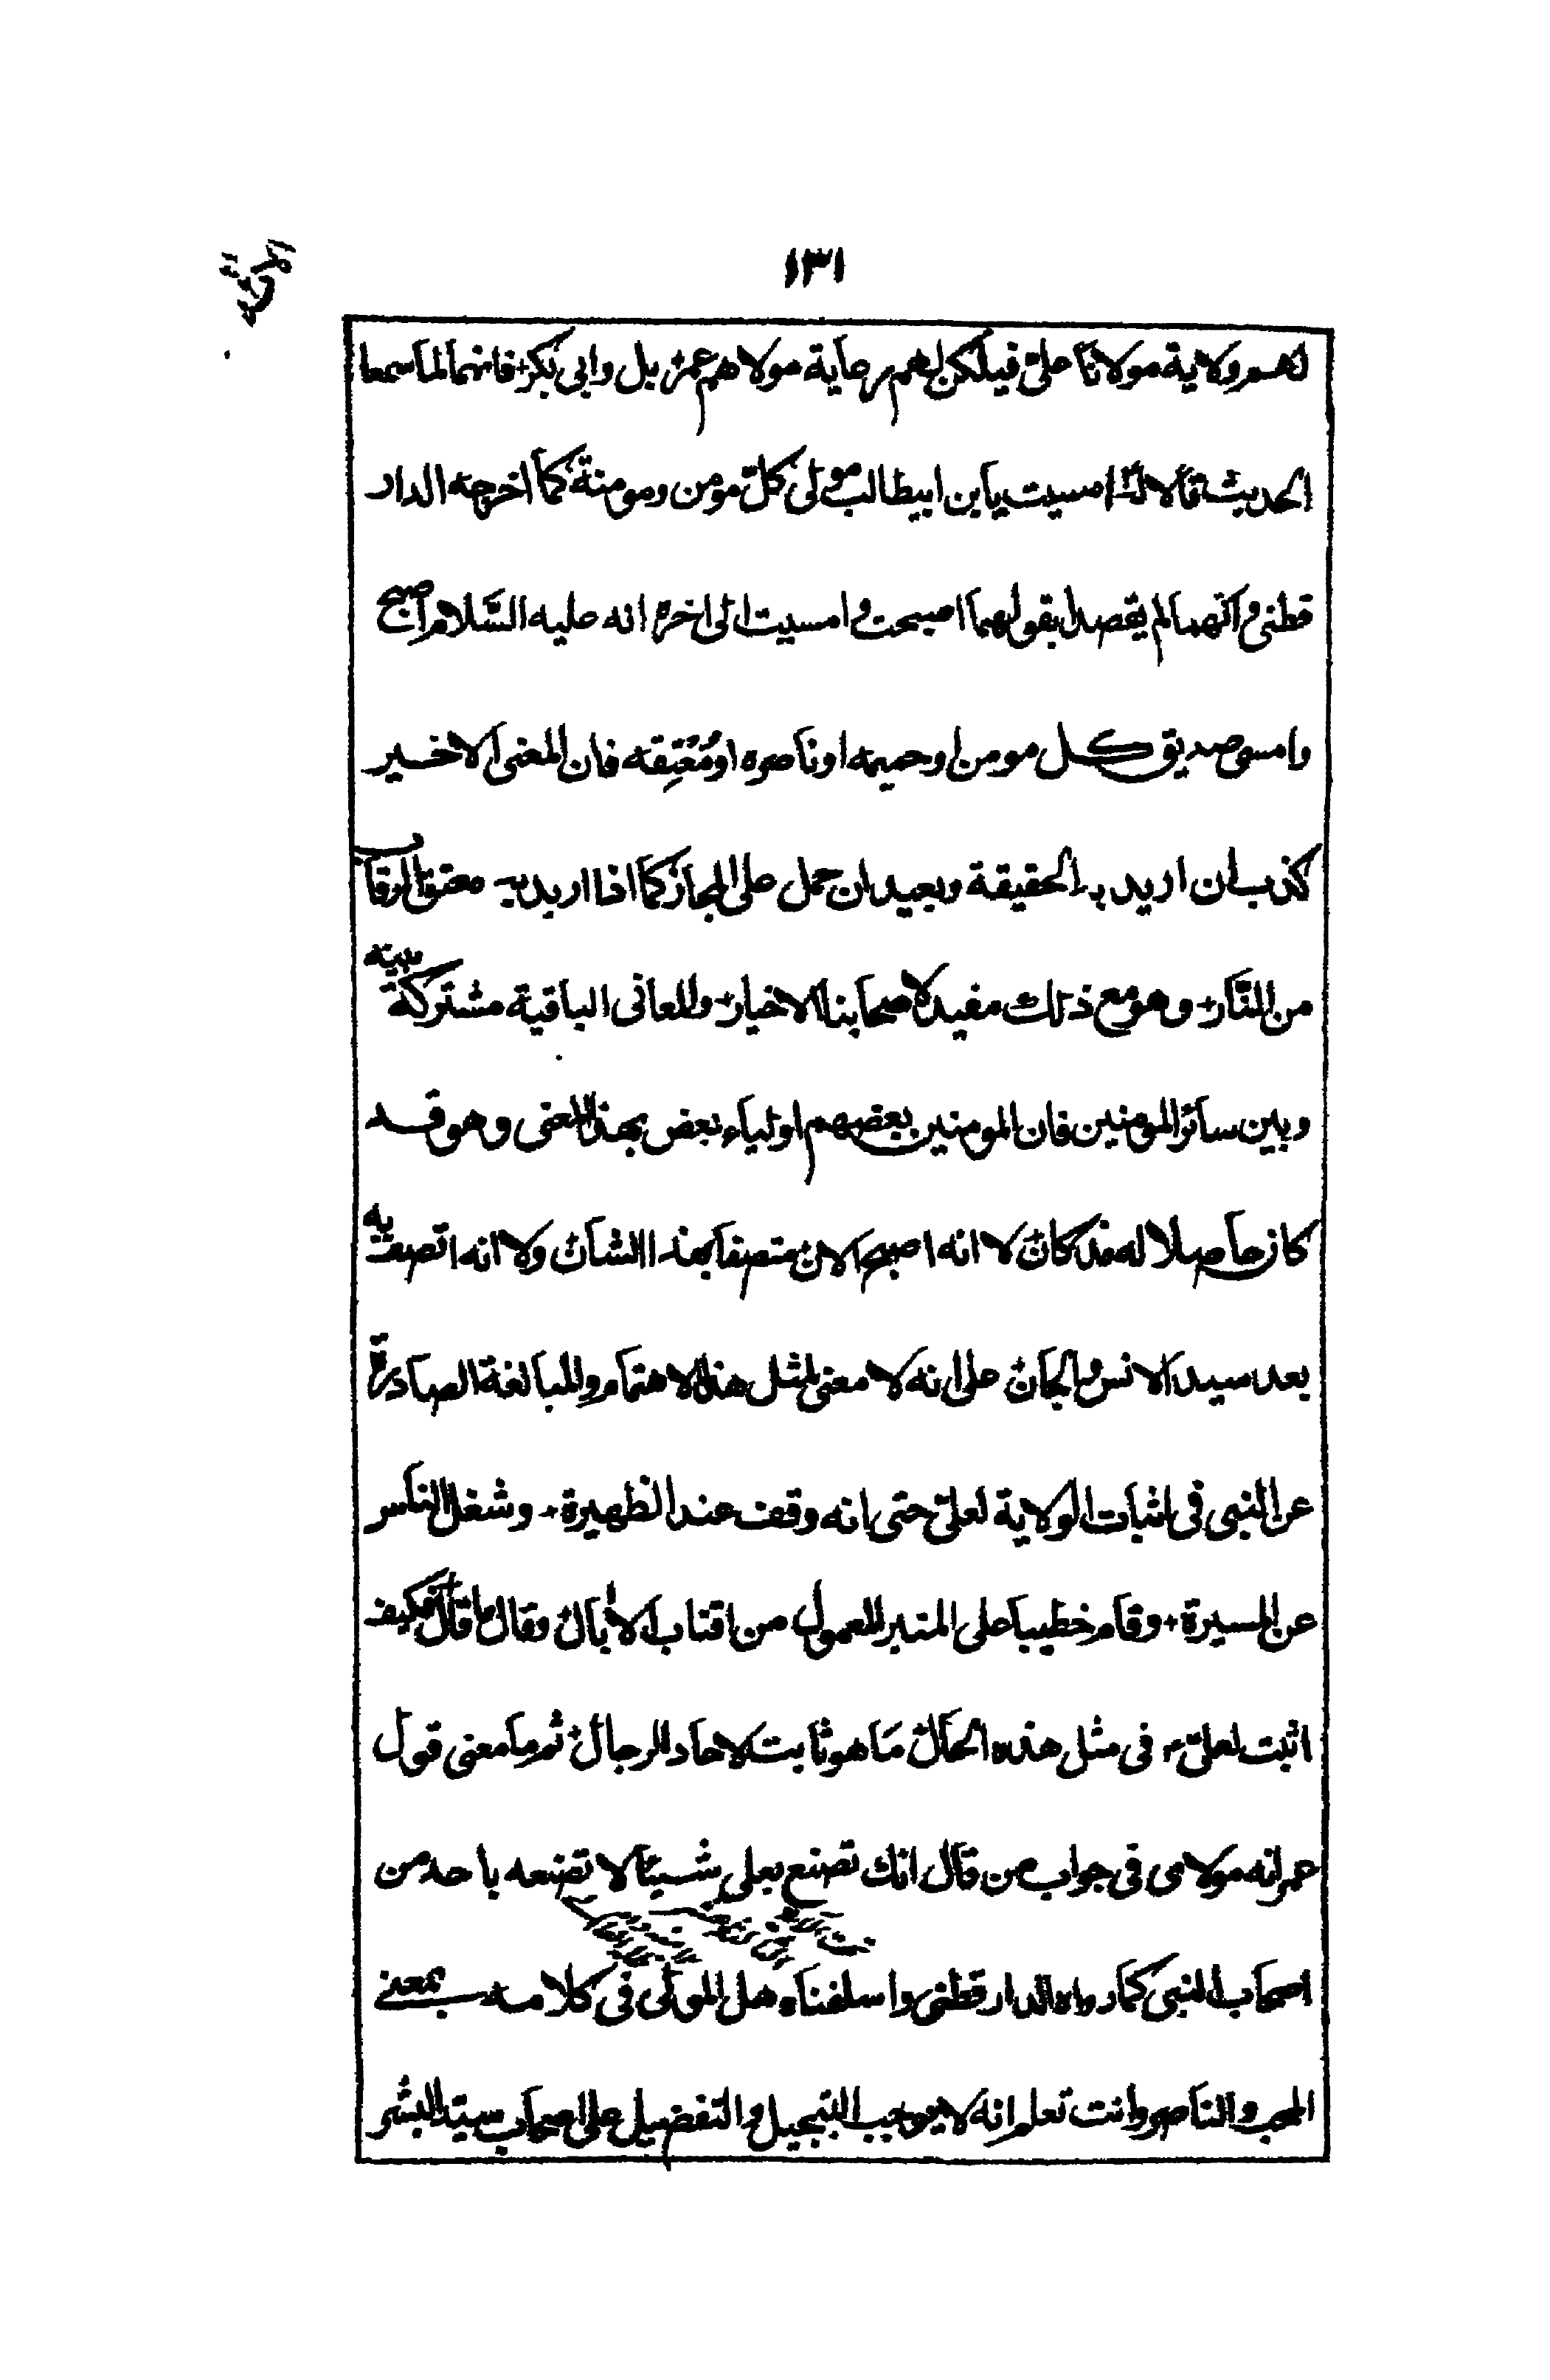 ١٣١
لهم ولاية مولانا علىّ فيلكن لهم رعاية مولاهم عمر، بل وابى بكر، فانهما لما سمعا
الحديث قالا له امسيت يابن ابيطالب مولى كلّ مومن ومومنة كما اخرجه الدار
قطنى وانهما لم يقصدا بقولهما اصبحت وامسيت الى اخره انه عليه السّلام اصبح
وامسى صديق كل مومن اوحميمه اوناصره اومُعْتِقه فان المعنى الاخير
كذب ان اريد به الحقيقة وبعيد ان حمل على المجاز كما اذا اريد به معتق الرقاب
من النّار، وهو مع ذلك مفيد لاصحابنا الاخيار، والمعانى الباقية مشتركة بينه
وبين سائر المومنين فان المومنين بعضهم اولياء بعض بهذا المعنى وهو قد
كان حاصلا له مذ كان لا انه اصبح الان متصفا بهذا الشان ولا انه اتصف به
بعد سيد الانس والجان على انه لا معنى لمثل هذا الاهتمام والمبالغة الصادرة
عن النبى فى اثبات الولاية لعلىّ حتى انه وقف عند الظهيرة، وشغل الناس
عن المسيرة، وقام خطيبا على المنبر المعمول من اقتاب الأبال وقال ما قال فكيف
اثبت لعلىّ فى مثل هذه الحال ما هو ثابت لاحاد الرجال ثم ما معنى قول
عمر انه مولاى فى جواب من قال انك تصنع بعلى شيئا لا تصنعه باحد من
اصحاب النبى كما رواه الدارقطنى واسلفناه هل المولى فى كلامه بمعنى
المحب والناصر وانت تعلم انه لا يوجب التبجيل والتفضيل على اصحاب سيّد البشر